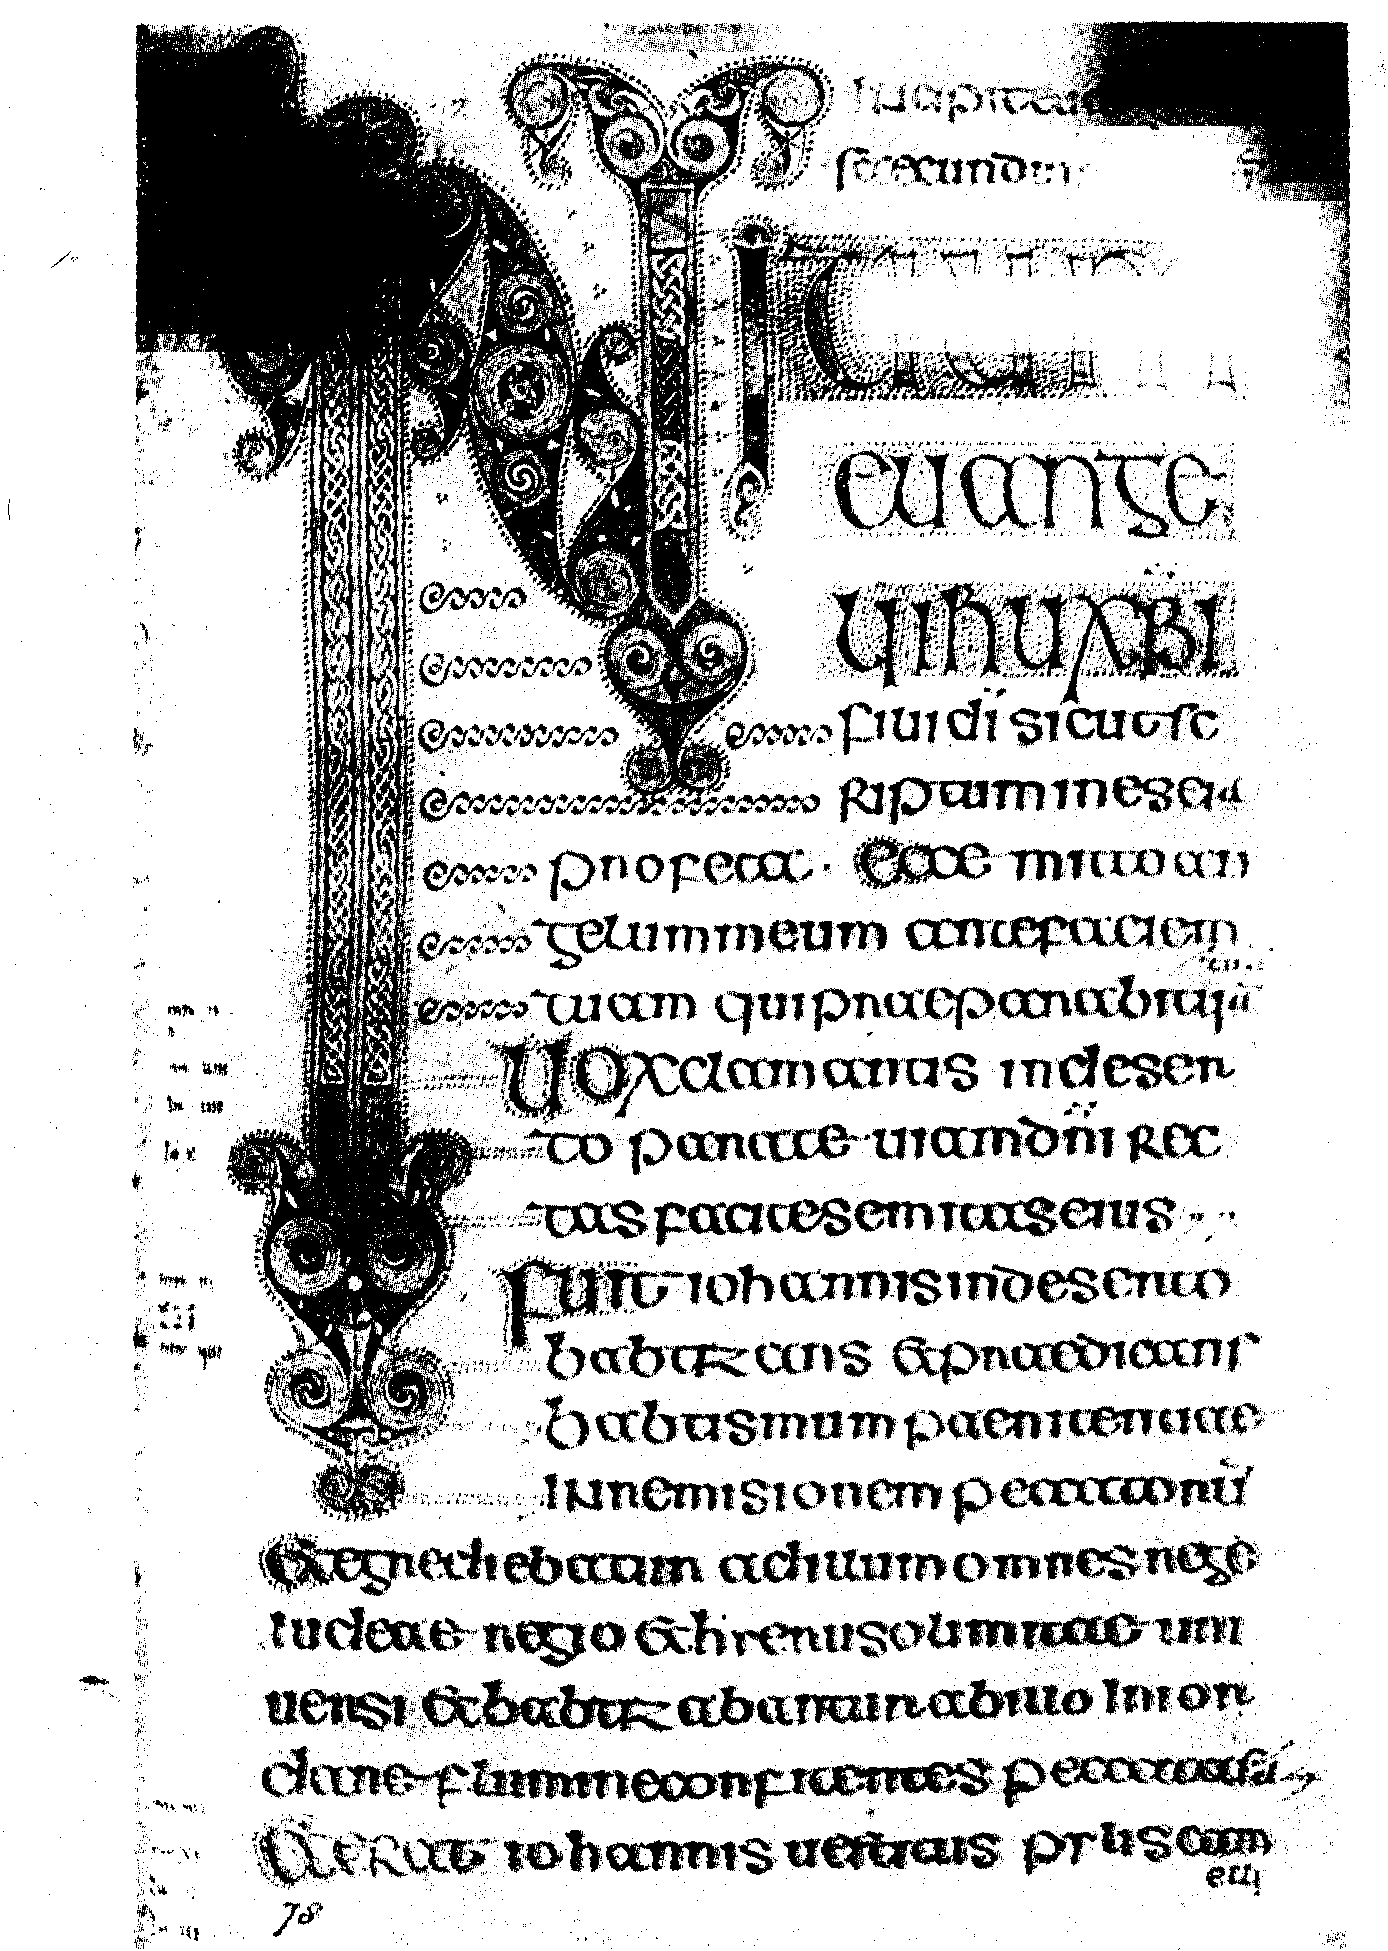 INI
euange
lii ihu xpi
filii di sicut sc
riptum in eseia
profeta · ecce mitto an
gelum meum ante faciem
tuam qui praeparabit uiã
uox clamantis in deser
to parate uiam dni rec
tas facite semitas eius
fuit iohannis in deserto
babtizans et praedicans
babtismum paenitentiae
in remisionem peccatorũ
et egrediebatur ad illum omnes rege
iudeae regio et hierusolimitae uni
uersi et babtizabantur ab illo in ior
dane flumine confitentes peccata sua
et erat iohannis uestitus pylis cam
elli
78